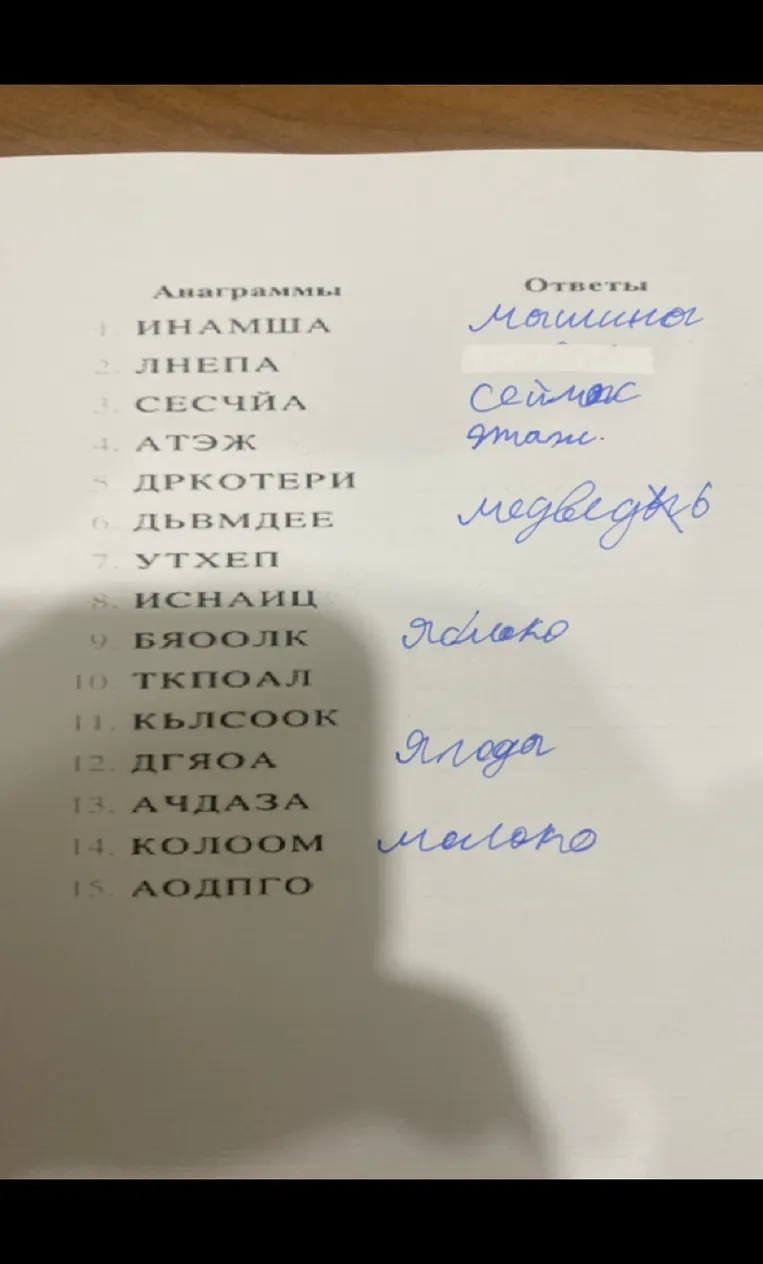 Анаграммы Ответы
1. ИНАМША мышины
2. ЛНЕПА
3. СЕСЧЙА
4. АТЭЖ этаж.
5. ДРКОТЕРИ
6. ДЬВМДЕЕ медведь
7. УТХЕП
8. ИСНАИЦ
9. БЯООЛК Яблоко
10. ТКПОАЛ
11. КЬЛСООК
12. ДГЯОА Ягоды
13. АЧДАЗА
14. КОЛООМ молоко
15. АОДПГО